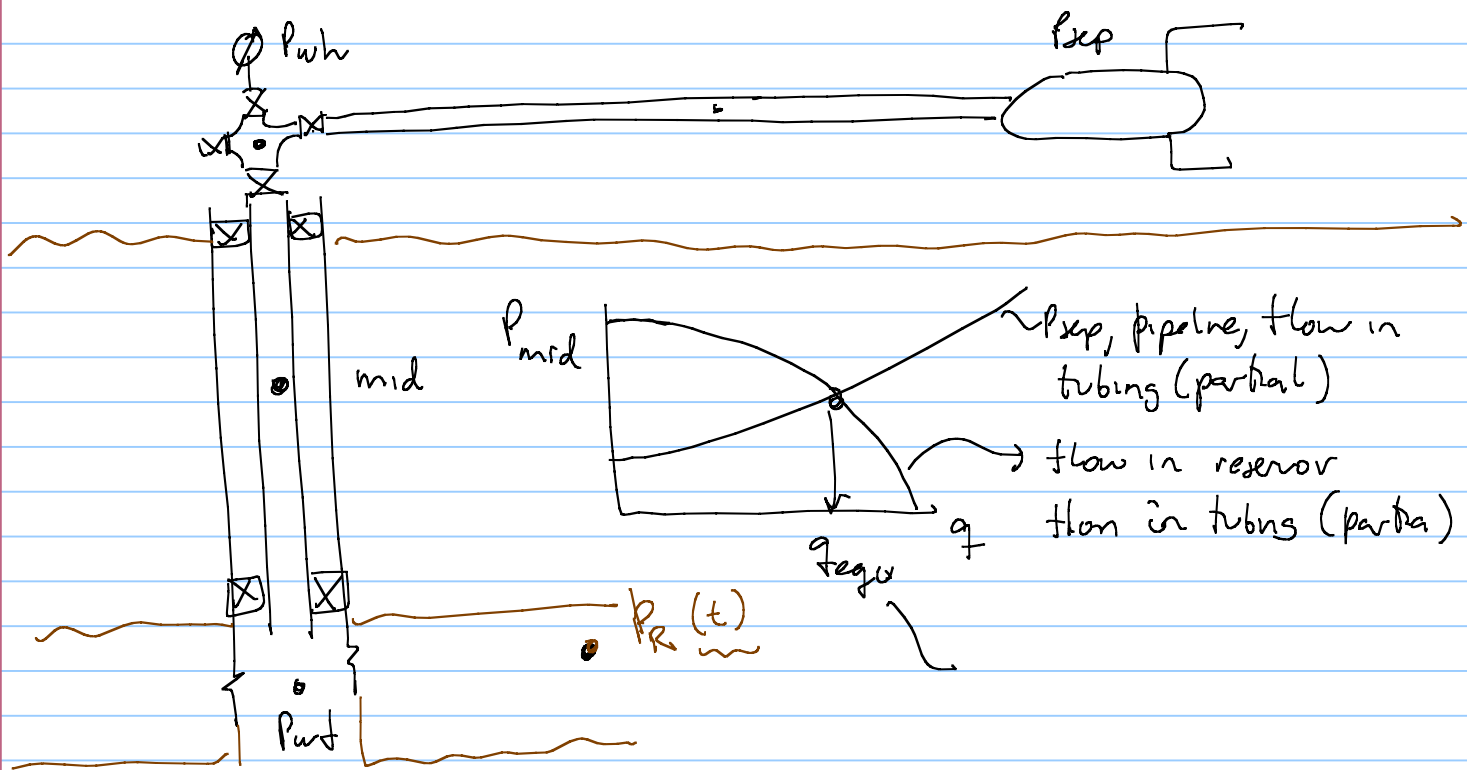 Pwh
Psep
Pmid
mid
Psep, pipelne, flow in
tubing (partial)
flow in reservor
flow in tubng (partia)
q
qequ
PR (t)
Pwf